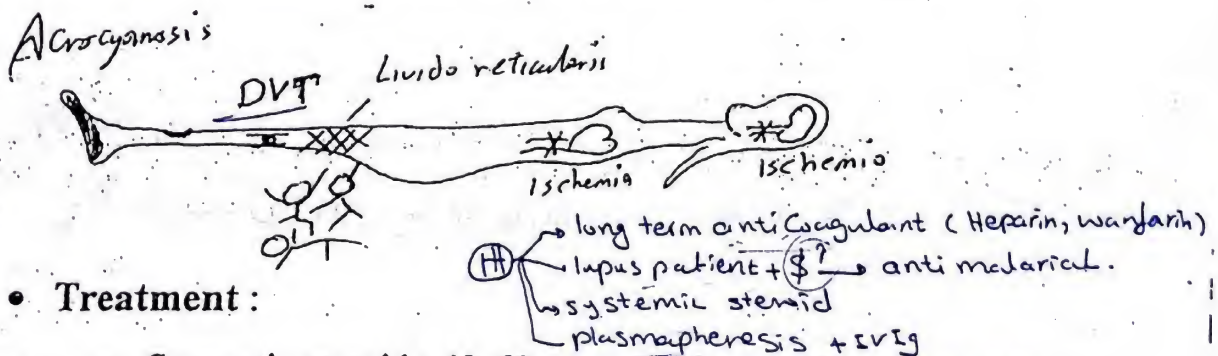 Acrocyanosis
Livido reticularis
DVT
Ischemia
Ischemia
ttt
long term anti Coagulant (Heparin, warfarin)
lupus patient + $? → anti malarial.
systemic steroid
plasmapheresis + IVIg
• Treatment :